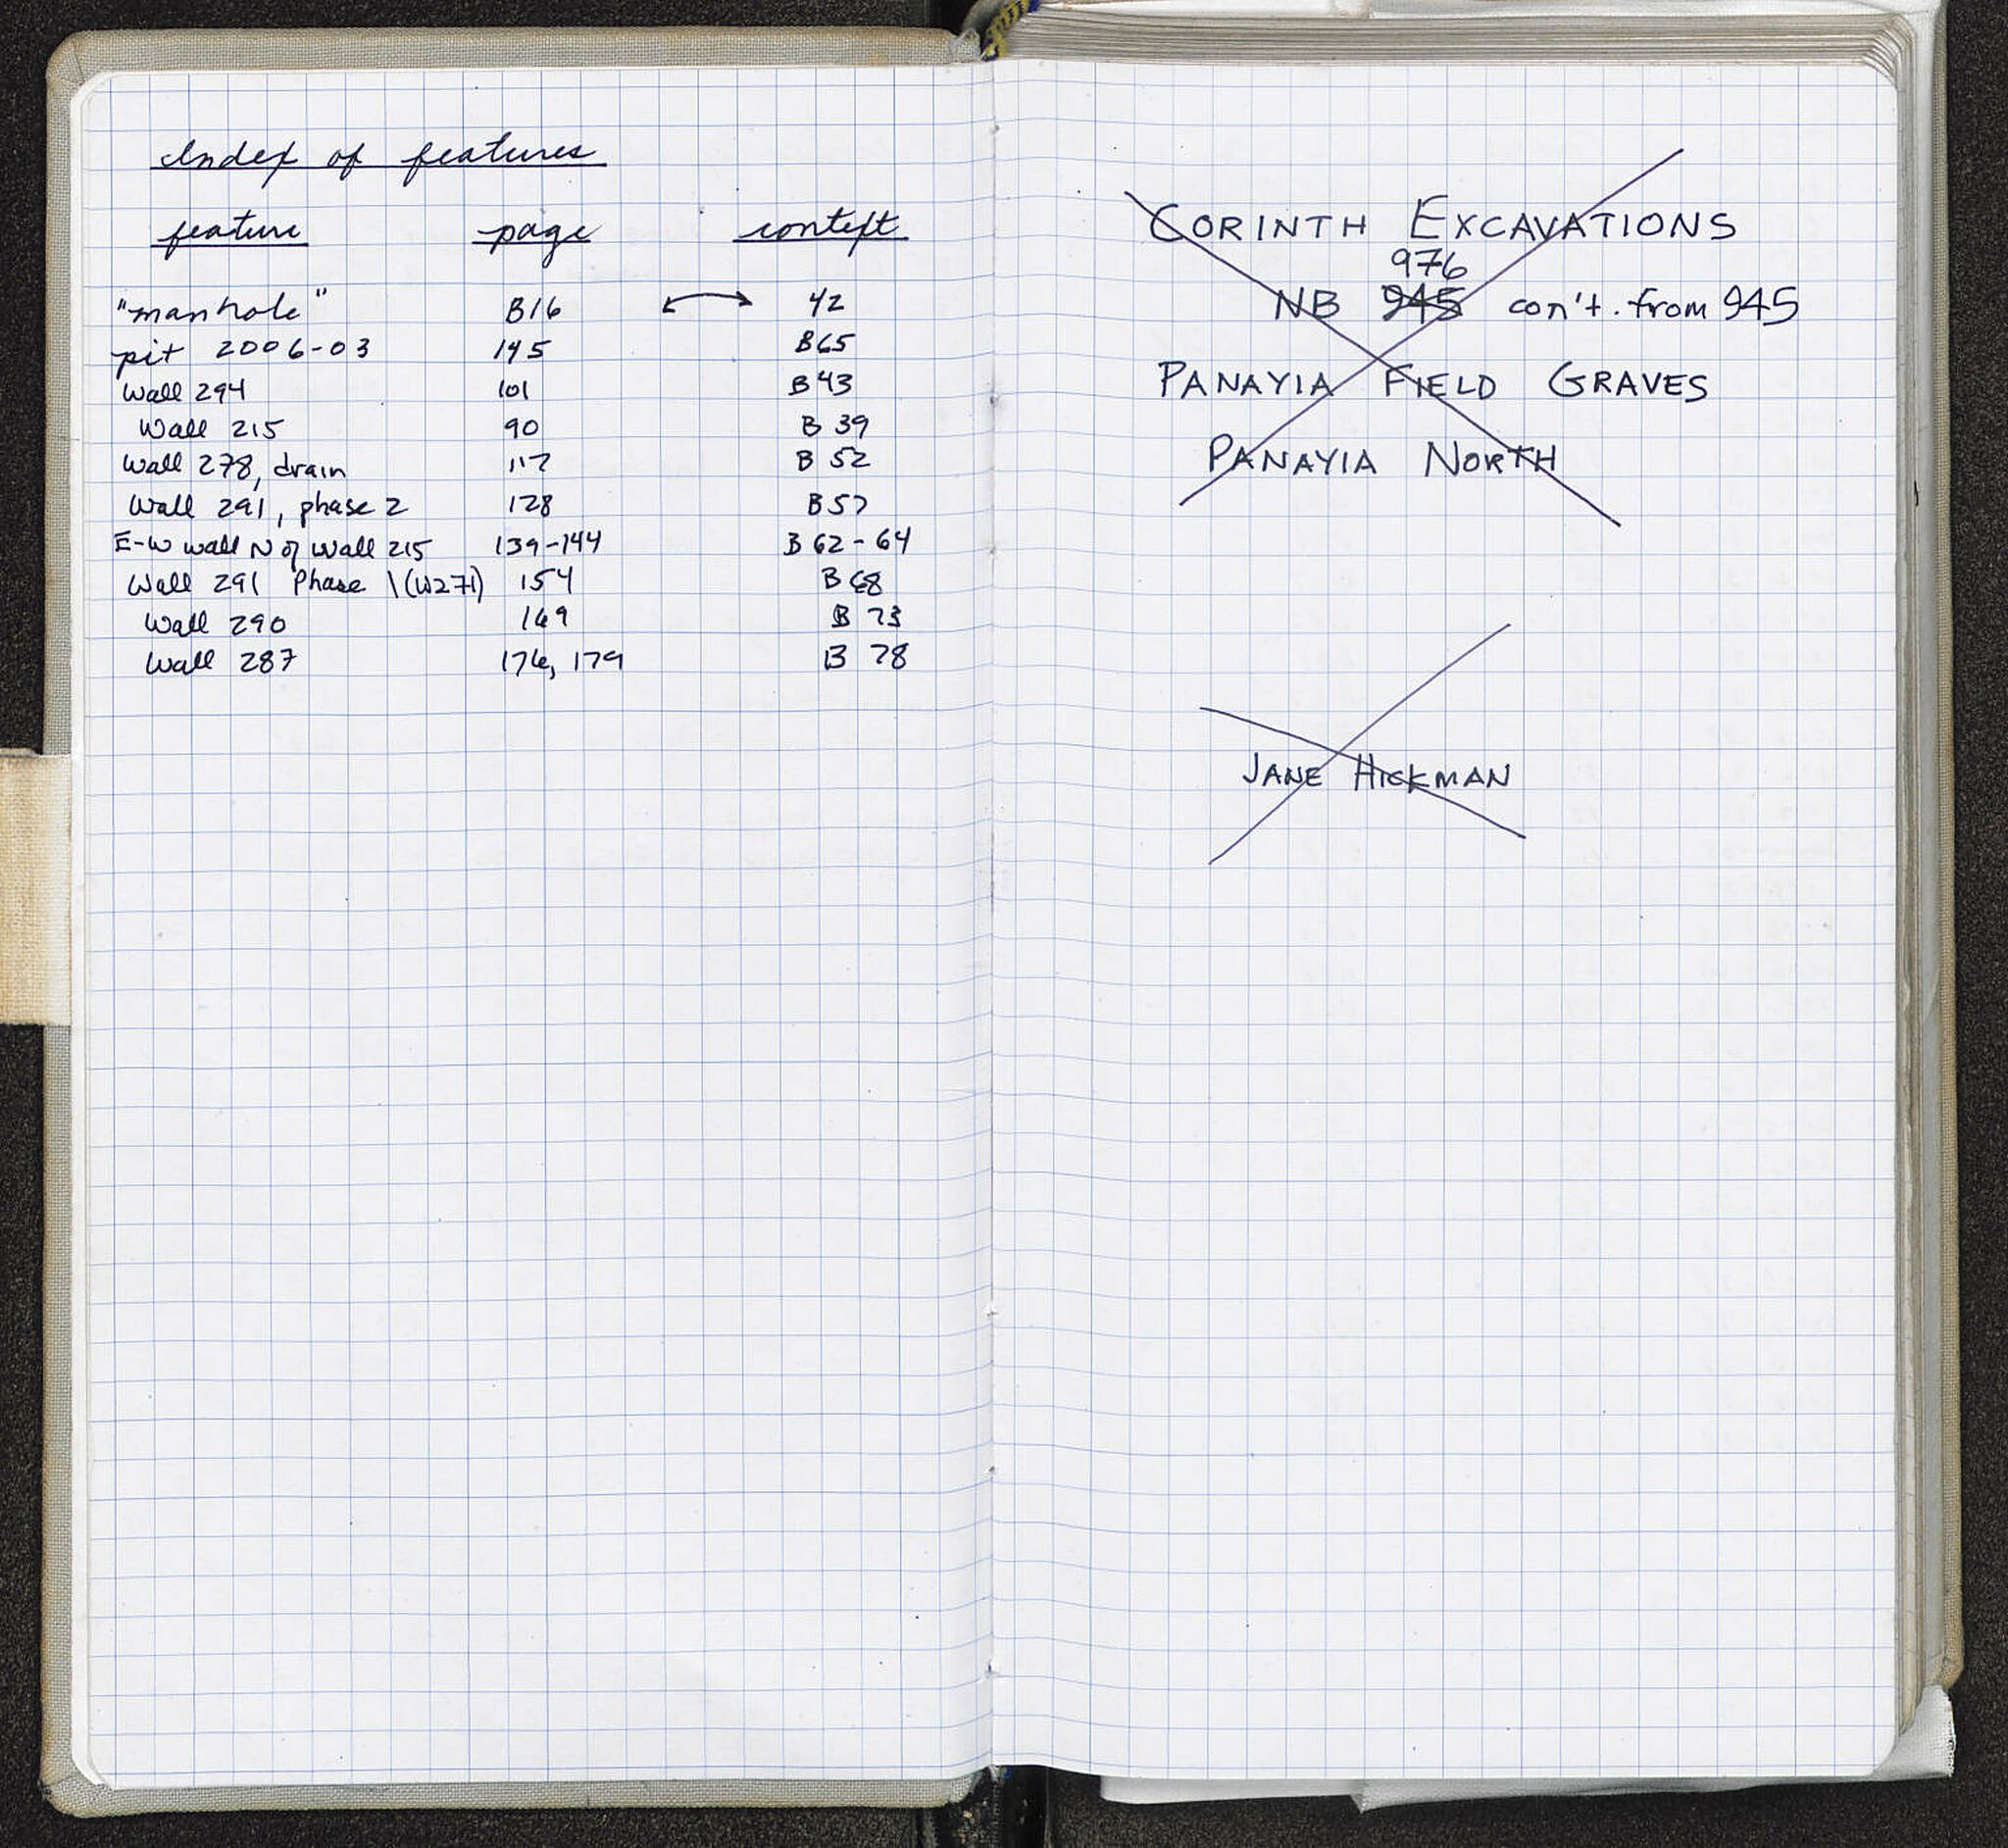 Index of features
feature page context
"manhole" B16 ↔ 42
pit 2006-03 145 B65
Wall 294 101 B43
Wall 215 90 B 39
Wall 278, drain 117 B 52
Wall 291, phase 2 128 B57
E-W wall N of Wall 215 139-144 B 62-64
Wall 291 Phase 1 (W271) 154 B 68
Wall 290 169 B 73
Wall 287 176, 179 B 78
CORINTH EXCAVATIONS
976
NB 945 con't. from 945
PANAYIA FIELD GRAVES
PANAYIA NORTH
JANE HICKMAN